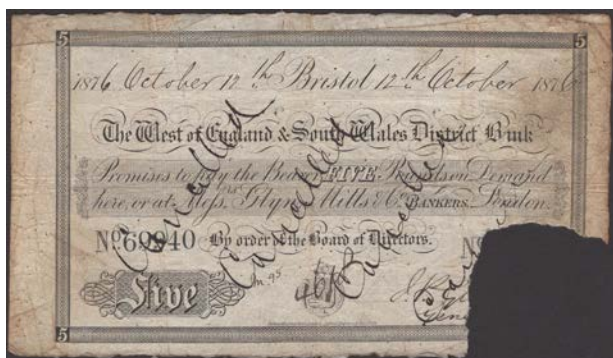 5 5
1876 October 12th Bristol 12th October 1876
The West of England & South Wales District Bank
Promises to pay the Bearer FIVE Pounds on Demand
here, or at Messrs. Glyn Mills & Co. BANKERS. London.
No. 69940 By order of the Board of Directors. No.
Five
5
Cancelled
Cancelled
Cancelled